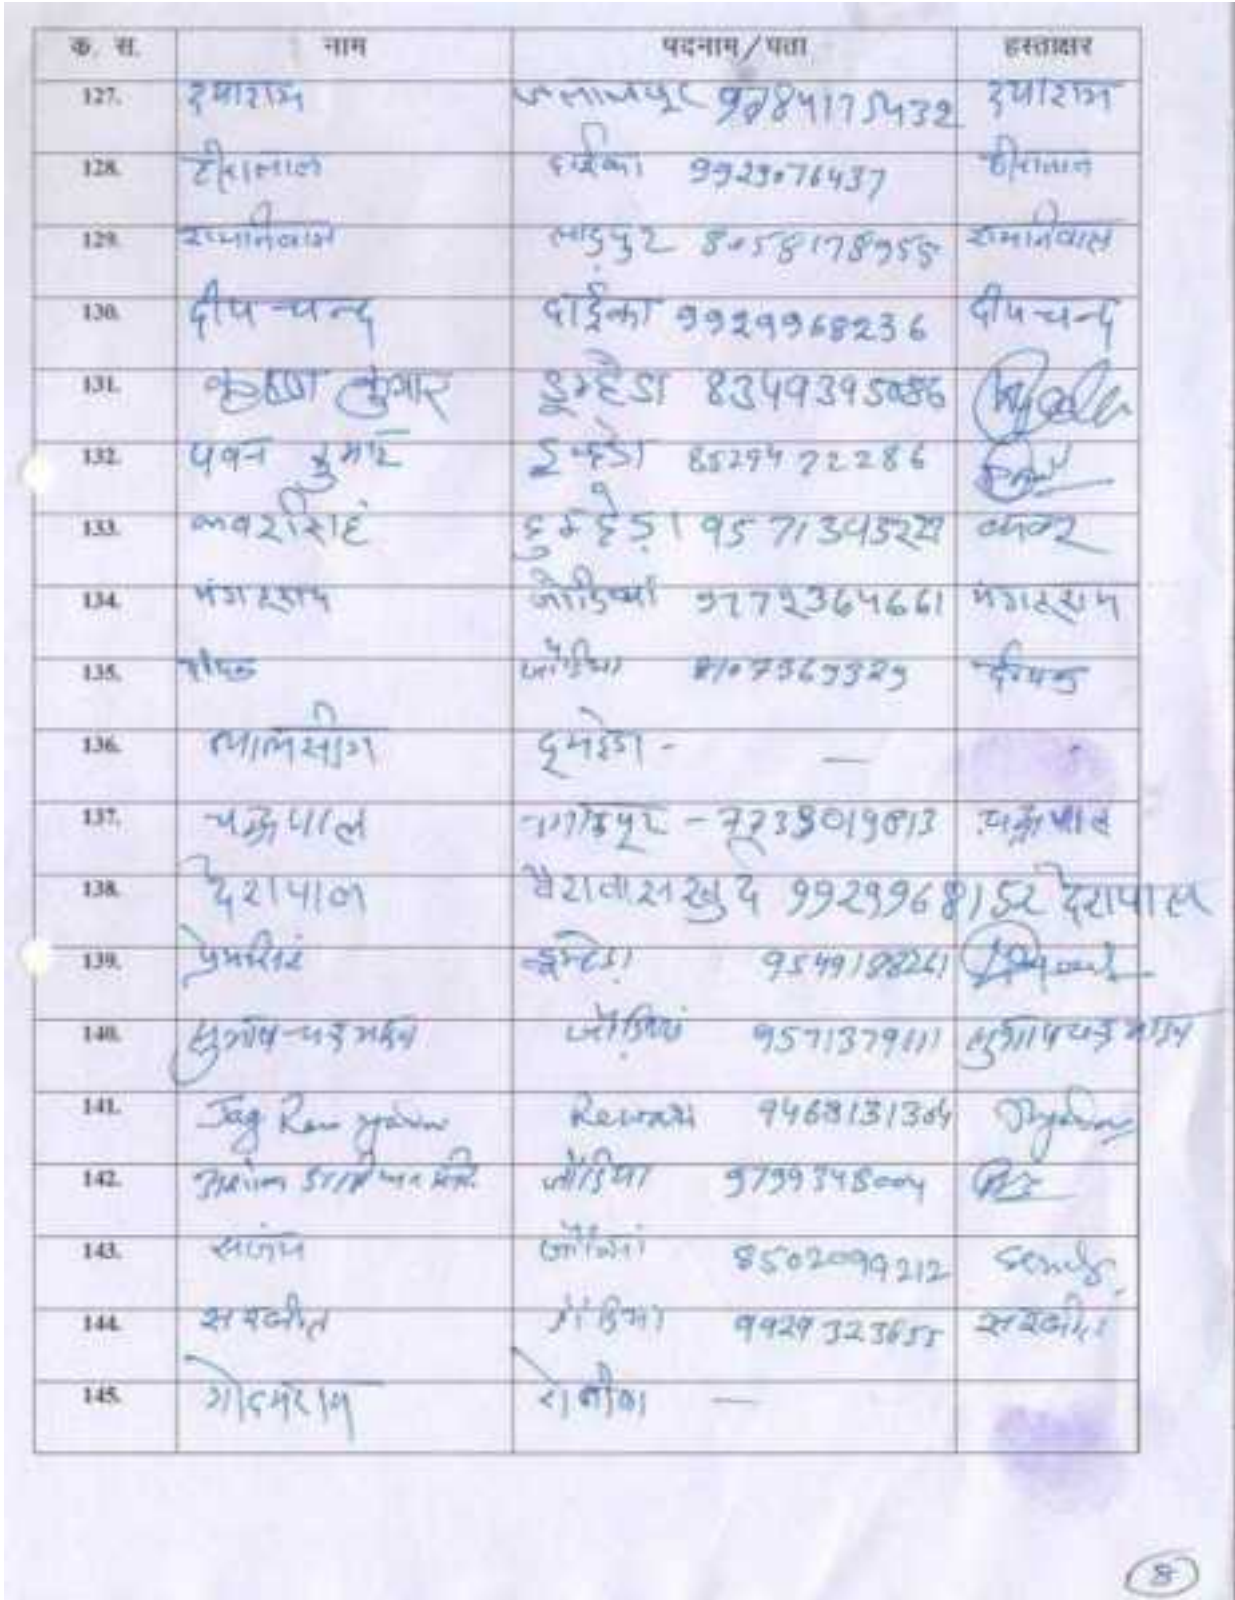 क. स. नाम पदनाम/पता हस्ताक्षर
127. दयाराम जलालपुर 9784175432 दयाराम
128. हीरालाल दाईका 9929076437 हीरालाल
129. रामनिवास लाडपुर 8058178958 रामनिवास
130. दीपचन्द दाईका 9929968236 दीपचन्द
131. कृष्ण कुमार डूम्हैडा 8349395086
132. पवन कुमार 8529472286
133. कवरसिहं डुम्हेड़ा 9571343222 कवर
134. मंगतराम जोडिया 9772364661 मंगतराम
135. दीपक जोडिया 8107369329 दीपक
136. लालसींग दूमहेडा - —
137. चन्द्रपाल - 7738019813 चन्द्रपाल
138. देशपाल बैरावास खुर्द देशपाल
139. प्रेमसिहं डूम्हेडा 9549188261
140. जोडिया 9571379111
141. Jag Ram Yadav Rewari 9468131304
142. जोडिया 9799348004
143. संजय जोडिया 8502099212
144. सरजीत जोडिया 9929323655 सरजीत
145. —
8